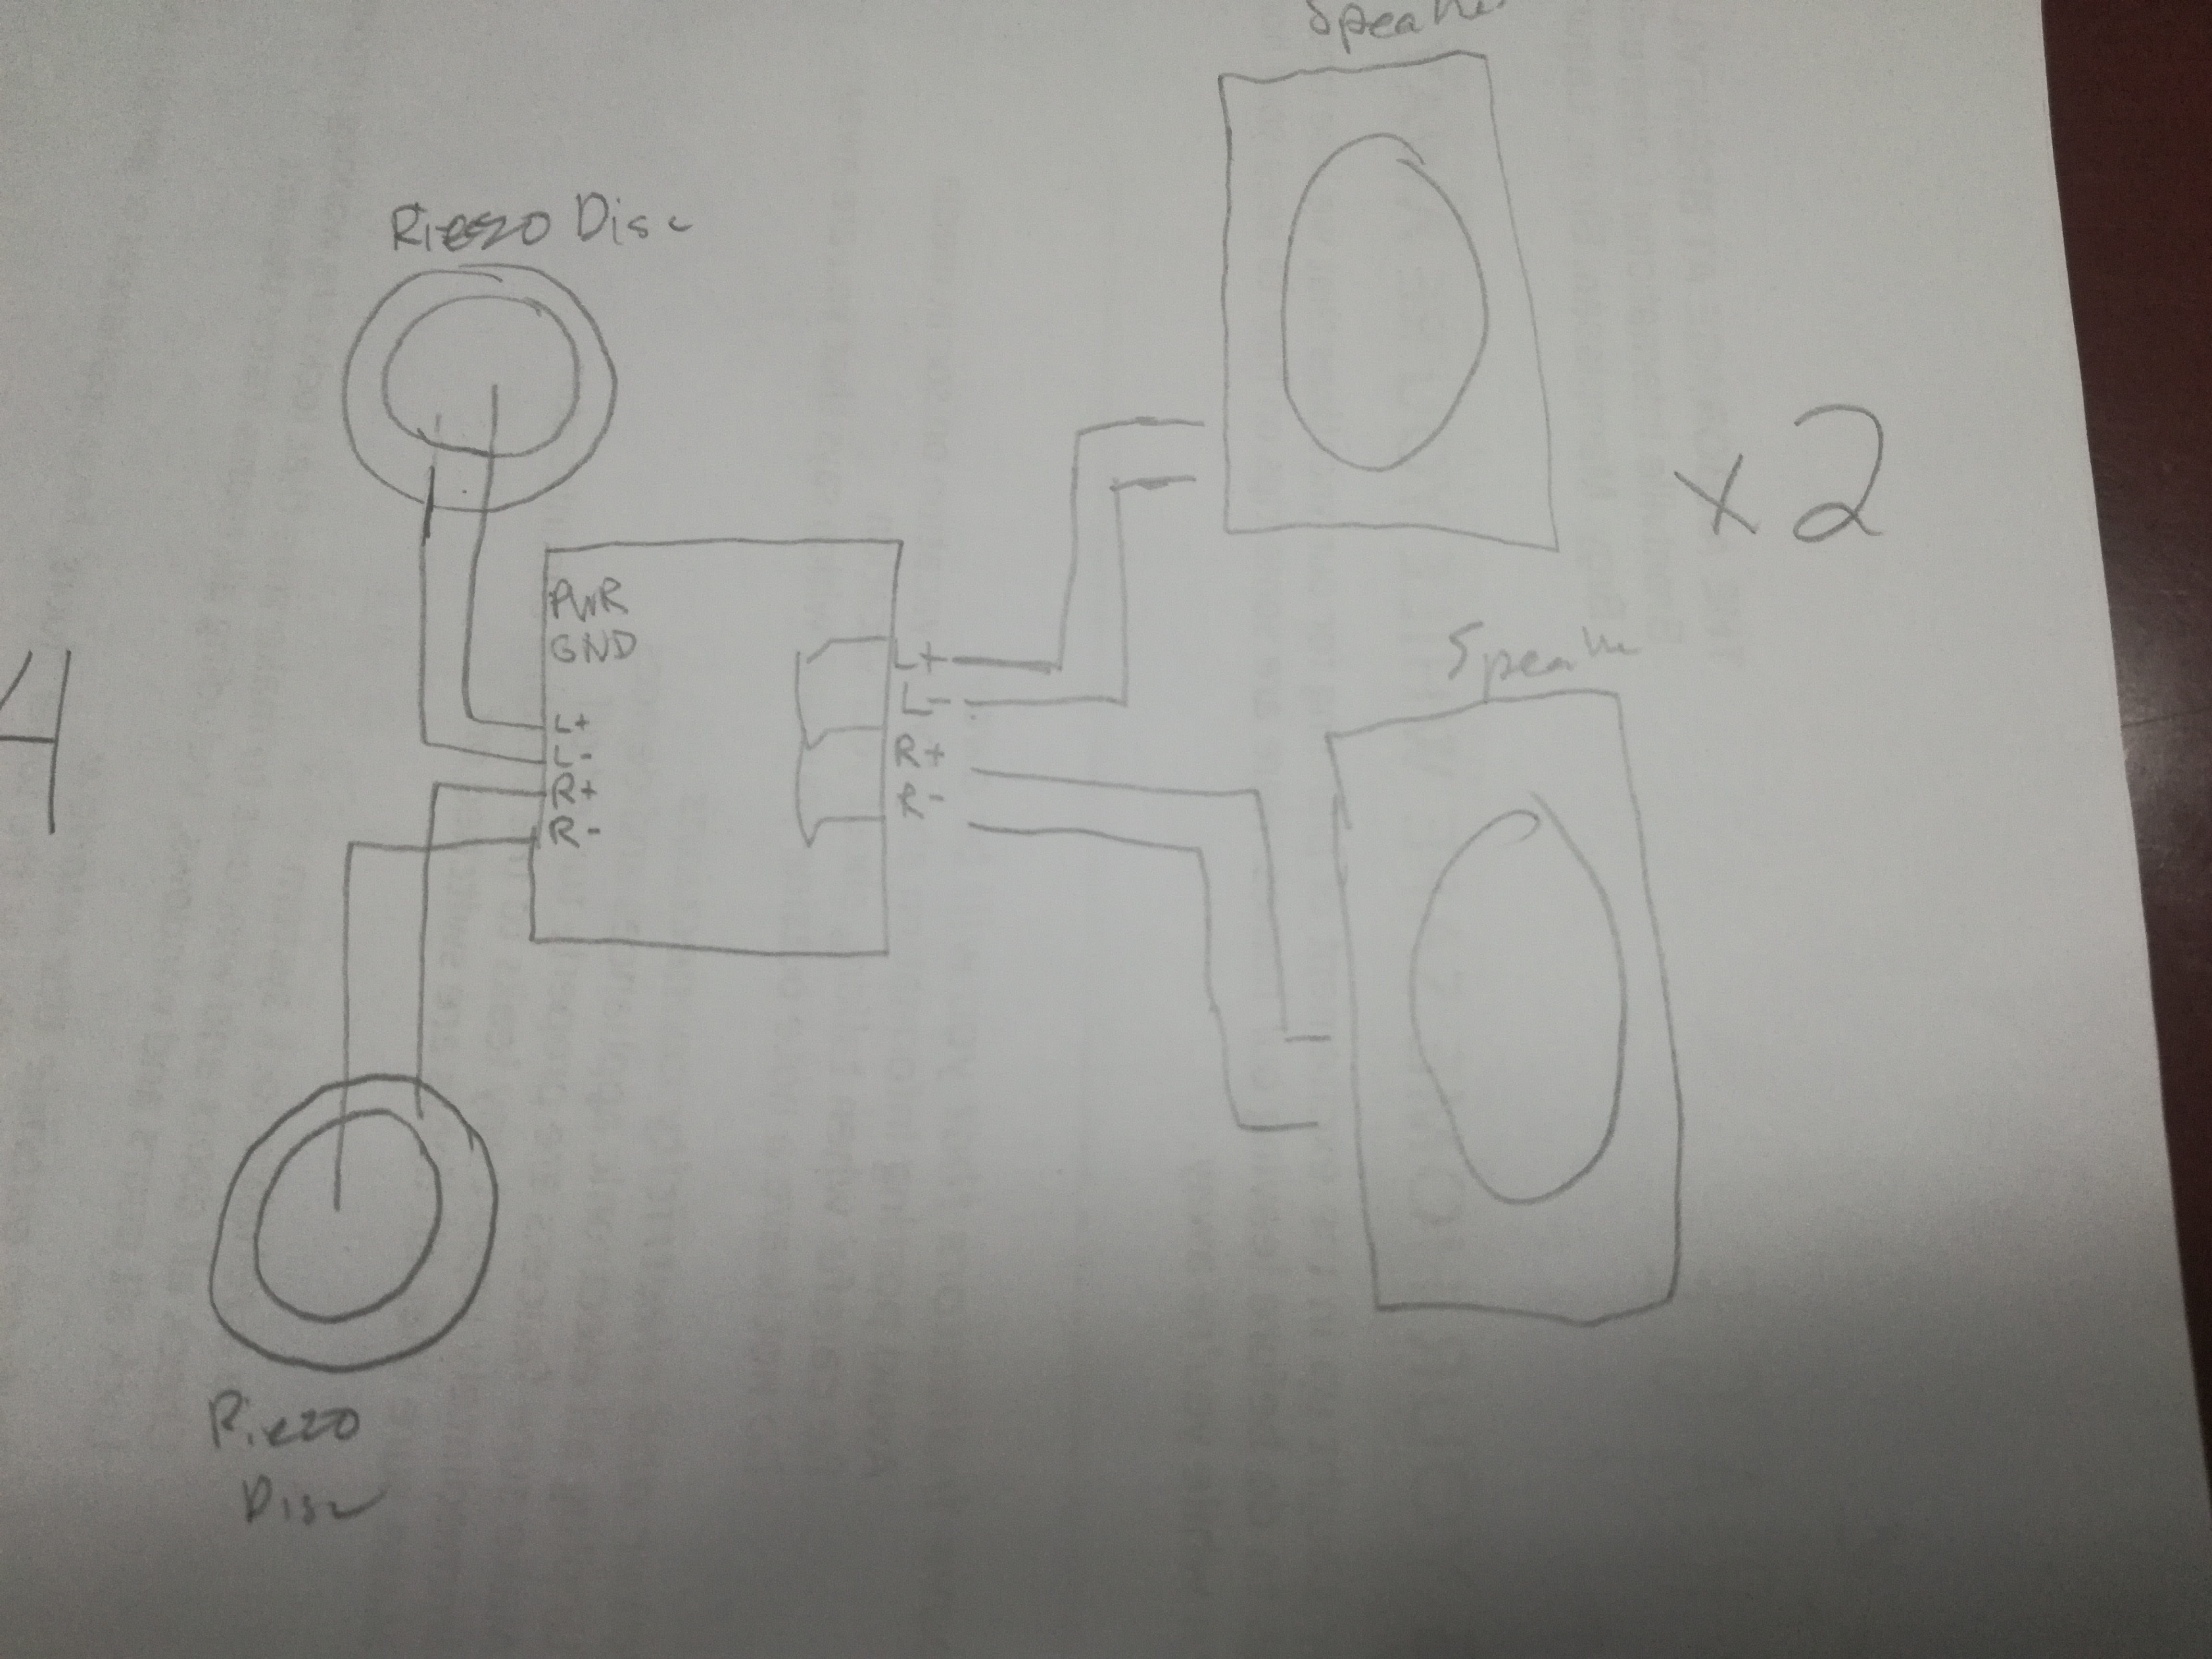 Speaker
Piezo Disc
x2
PWR
GND
L+
L-
R+
R-
L+
L-
R+
R-
4
Speaker
Piezo
Disc